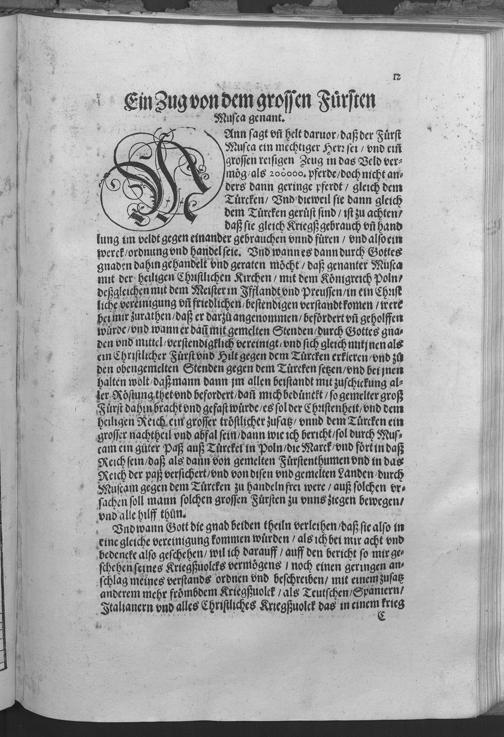 12
Ein Zug von dem grossen Fürsten
Musca genant.
MAnn sagt vñ helt daruor / daß der Fürst
Musca ein mechtiger Herr sei / vnd ein
grossen reisigen Zeug in das Veld ver-
mög / als 200000. pferde / doch nicht an-
ders dann geringe pferdt / gleich dem
Türcken / Vnd dieweil sie dann gleich
dem Türcken gerüst sind / ist zu achten /
daß sie gleich Kriegß gebrauch vñ hand
lung im veldt gegen einander gebrauchen vnnd füren / vnd also ein
werck / ordnung vnd handel seie. Vnd wann es dann durch Gottes
gnaden dahin gehandelt vnd geraten möcht / daß genanter Musca
mit der heiligen Christlichen Kirchen / mit dem Königreich Poln /
deßgleichen mit dem Meister in Jfflandt vnd Preussen / in ein Christ
liche vereinigung vñ friedlichen bestendigen verstand komen / were
bei mir zurathen / daß er darzů angenommen / befördert vñ geholffen
würde / vnd wann er dañ mit gemelten Stenden / durch Gottes gna-
den vnd mittel / verstendigklich vereinigt / vnd sich gleich mit jnen als
ein Christlicher Fürst vnd Hilt gegen dem Türcken erkleren / vnd zů
den obengemelten Stenden gegen dem Türcken setzen / vnd bei jnen
halten wölt / daß mann dann im allen beistand mit zuschickung al-
ler Röstung thet vnd befordert / daß mich bedünckt / so gemelter groß
Fürst dahin bracht vnd gefast würde / es sol der Christenheit / vnd dem
heiligen Reich ein grosser tröstlicher zusatz / vnnd dem Türcken ein
grosser nachtheil vnd abfal sein / dann wie ich bericht / sol durch Mus-
cam ein gůter Paß auß Türckei in Poln / die Marck / vnd fört in daß
Reich sein / daß als dann von gemelten Fürstenthumen vnd in das
Reich der paß versichert / vnd von disen vnd gemelten Landen / durch
Muscam gegen dem Türcken zu handeln frei were / auß solchen vr-
sachen soll mann solchen grossen Fürsten zu vnns ziegen bewegen /
vnd alle hilff thůn.
Vnd wann Gott die gnad beiden theiln verleihen / daß sie also in
eine gleiche vereinigung kommen würden / als ich bei mir acht vnd
bedencke also geschehen / wil ich darauff / auff den bericht so mir ge-
schehen seines Kriegßuolcks vermögens / noch einen geringen an-
schlag meines verstands ordnen vnd beschreiben / mit einem zusatz
anderem mehr frömbdem Kriegßuolck / als Teutschen / Spaniern /
Jtalianern vnd alles Christliches Kriegßuolck das in einem krieg
C